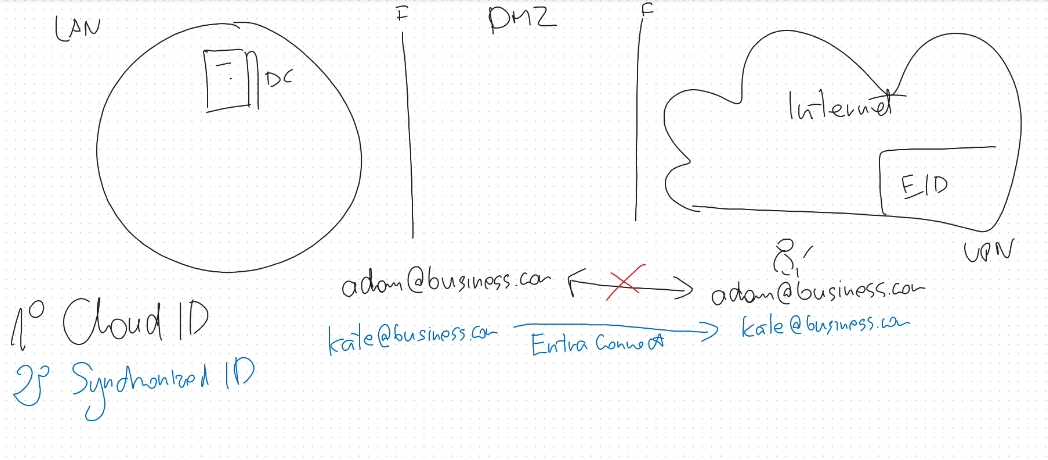 LAN
F
DMZ
F
DC
Internet
E/D
UPN
adam@business.com
adam@business.com
1° Cloud ID
kate@business.com
Entra Connect
kate@business.com
2° Synchronized ID